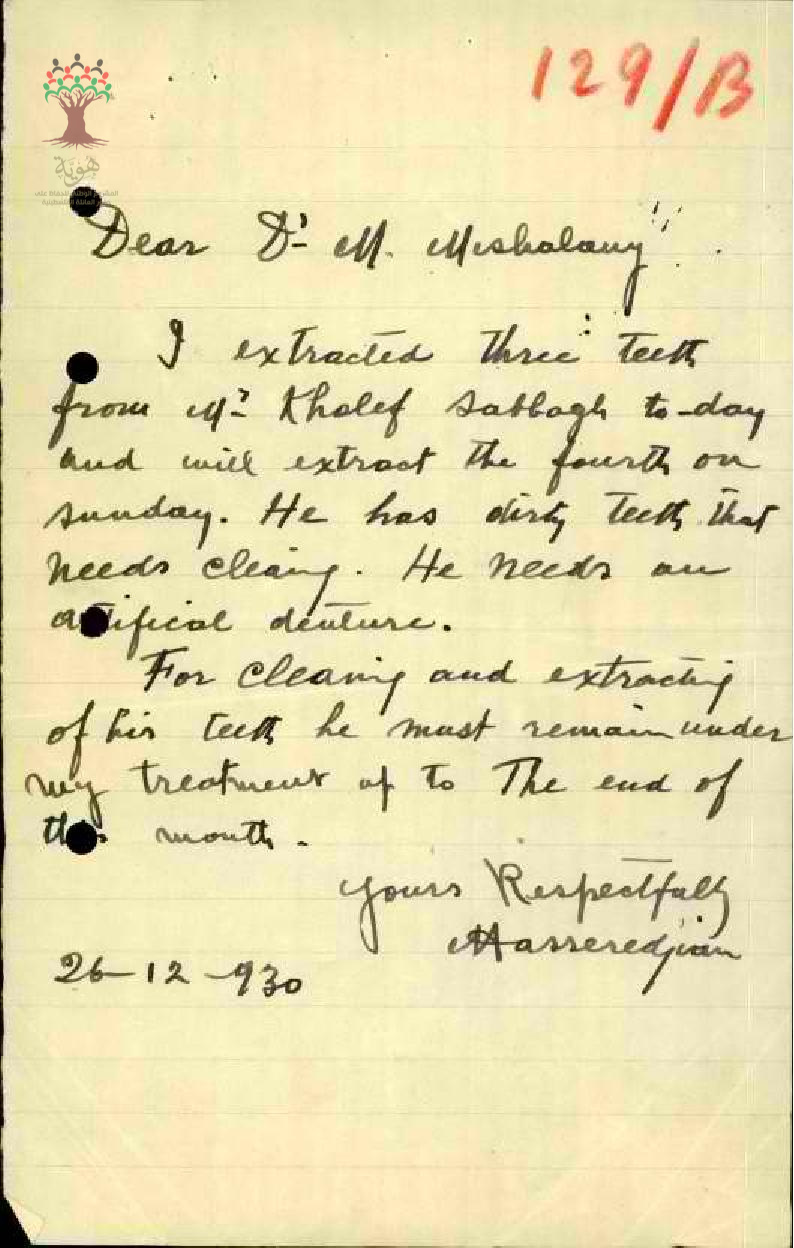 129/B
هوية
Dear Dr M. Mishalany
I extracted three teeth
from Mr Khalef Sabbagh to-day
and will extract the fourth on
sunday. He has dirty teeth that
needs cleaing. He needs an
a ifical denture.
For cleaning and extracting
of his teeth he must remain under
my treatment up to The end of
this month.
Yours Respectfully
26-12-930